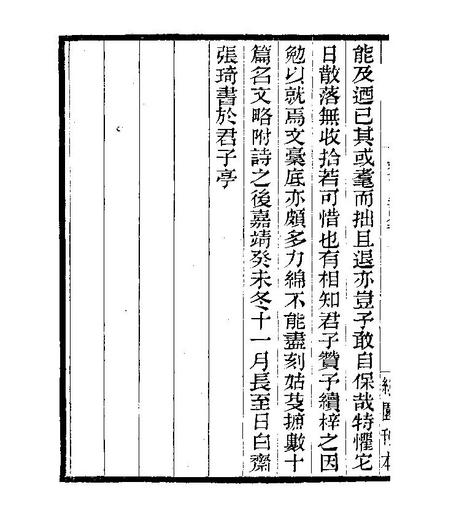 能及迺已其或耄而拙且退亦豈予敢自保哉特懼它
日散落無收拾若可惜也有相知君子贊予續梓之因
勉以就焉文稾底亦頗多力綿不能盡刻姑芟摭數十
篇名文略附詩之後嘉靖癸未冬十一月長至日白齋
張琦書於君子亭